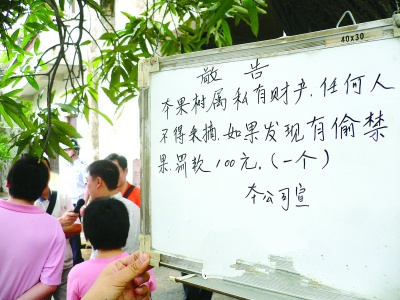 40×30
敬告
本果树属私有财产.任何人
不得采摘.如果发现有偷禁
果.罚款100元.(一个)
本公司宣